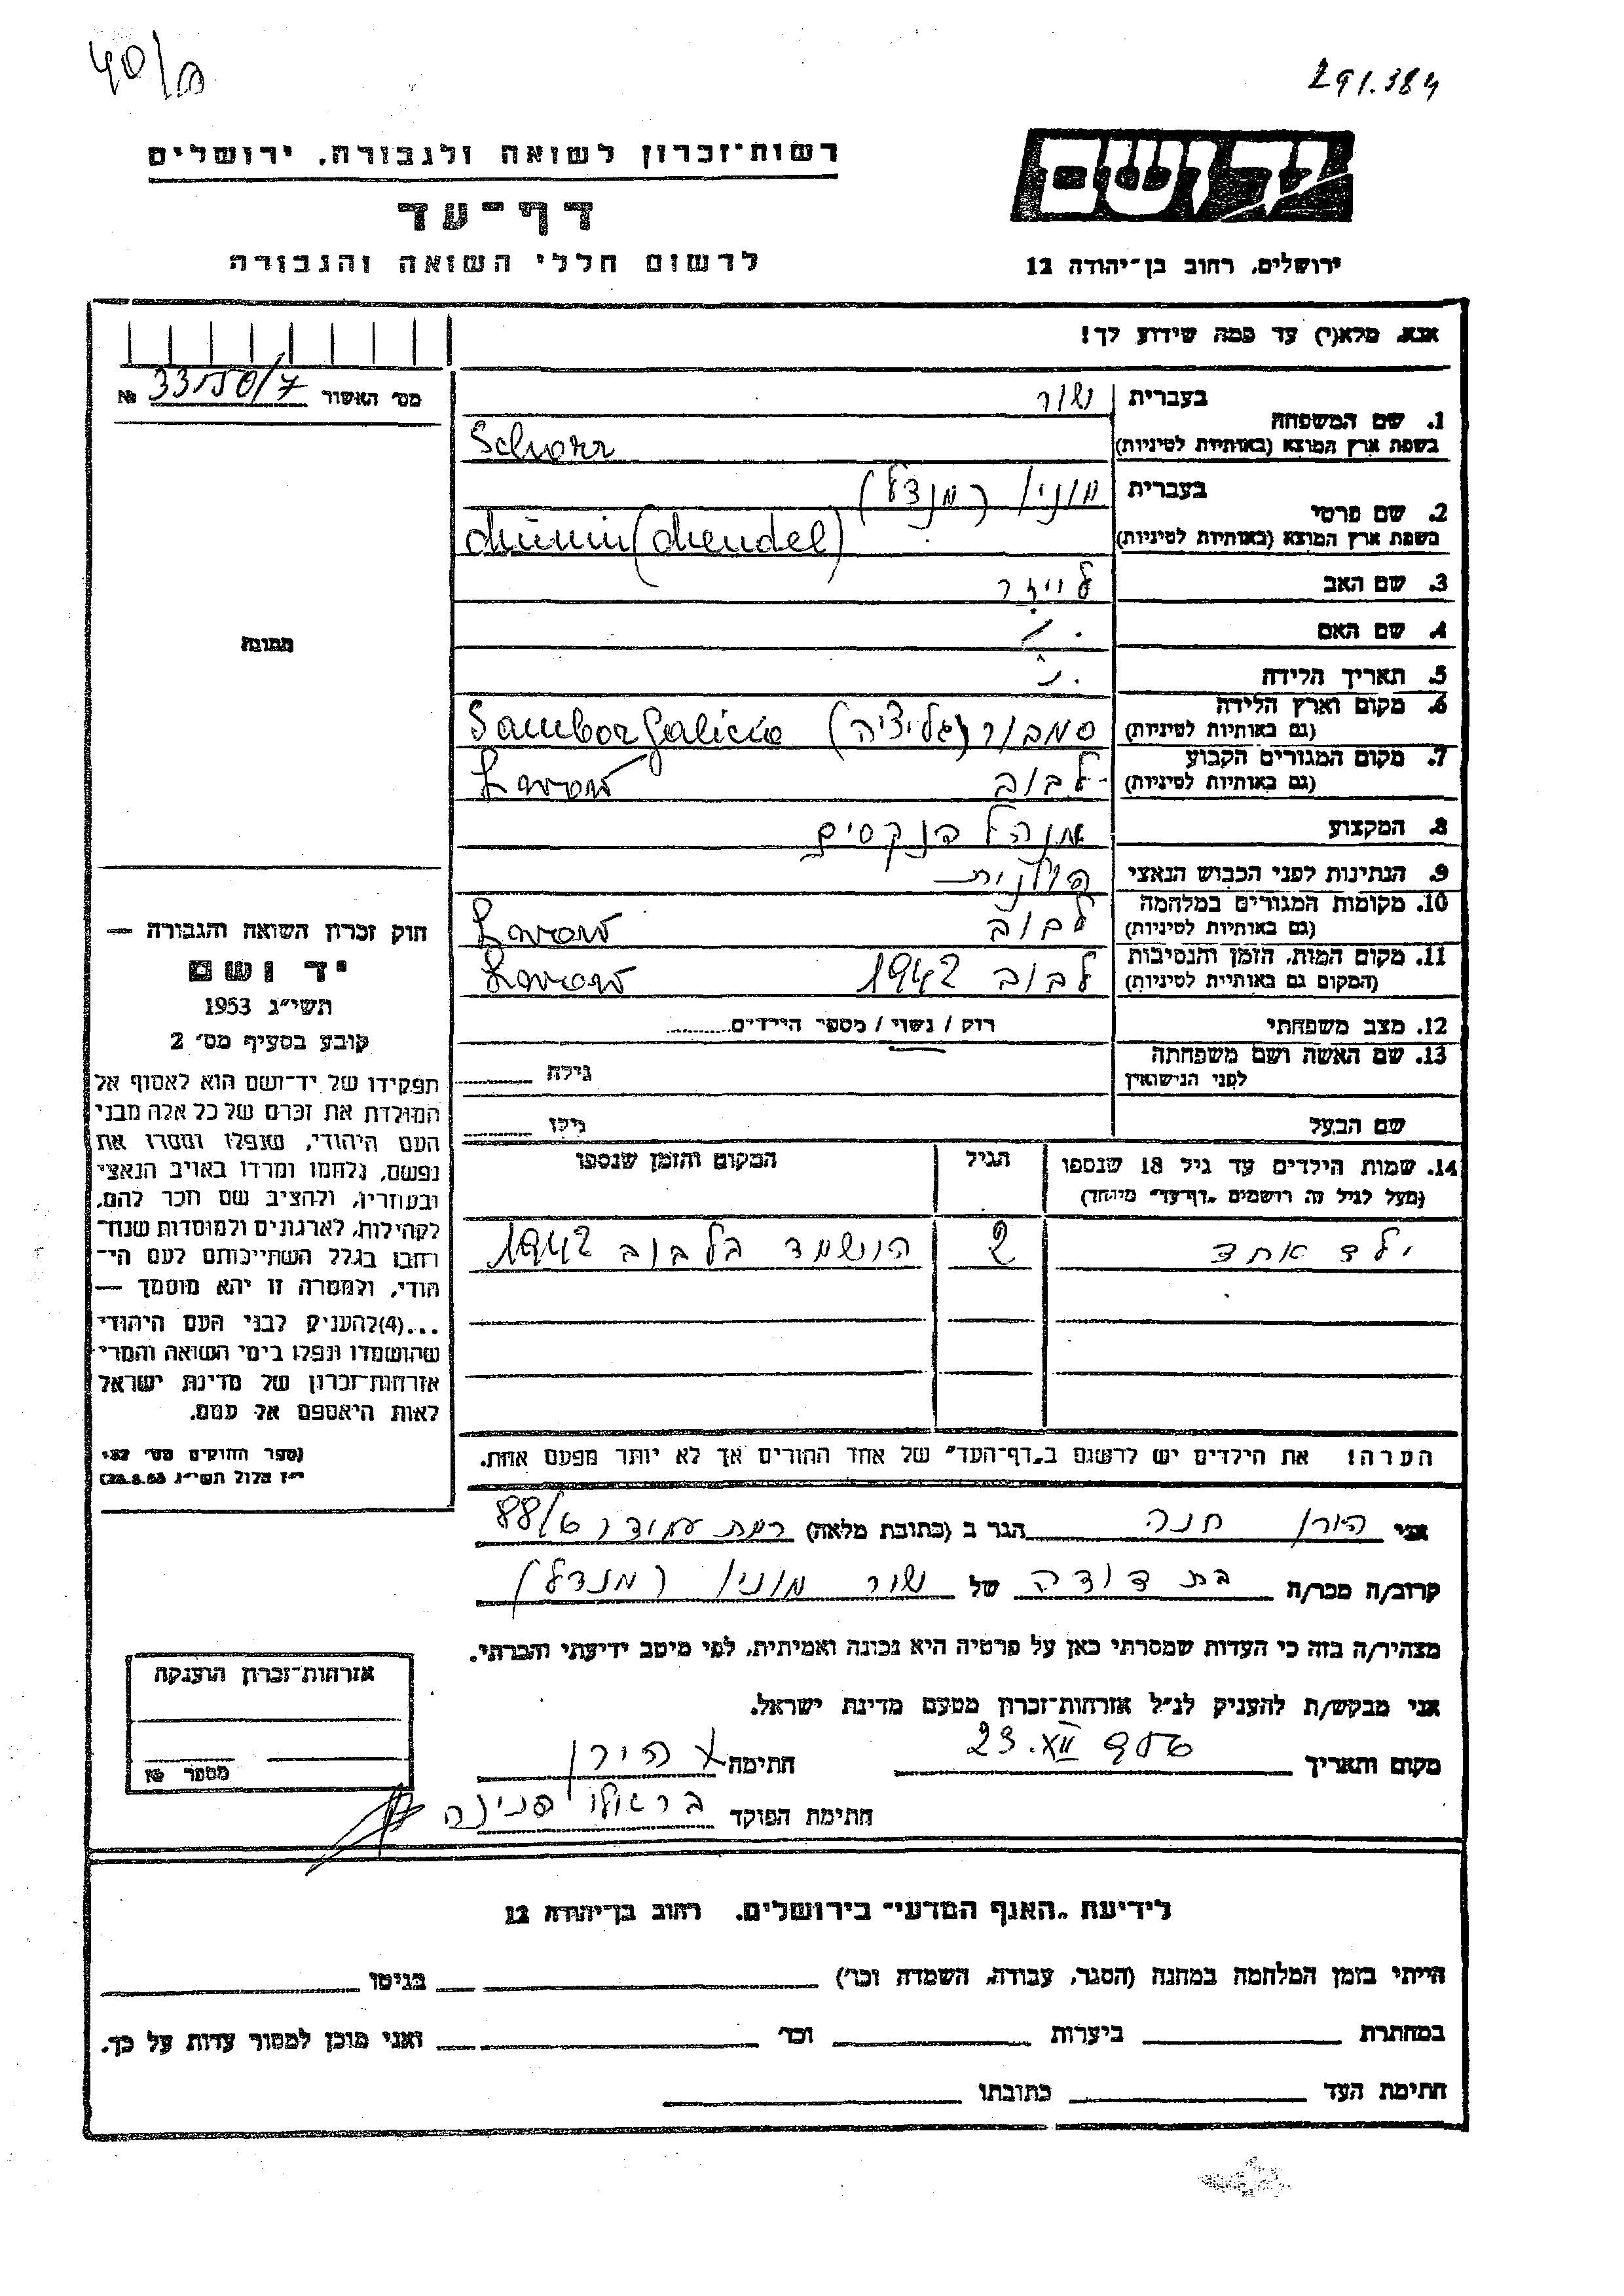 40/ם
291.384
רשות־זכרון לשואה ולגבורה. ירושלים
דף־עד
לרשום חללי השואה והגבורה
יד ושם
ירושלים, רחוב בן־יהודה 12
אנא, מלא(י) עד כמה שידוע לך!
מס׳ האשור
№
1. שם המשפחה
בעברית שור
בשפת ארץ המוצא (באותיות לטיניות) Schorr
2. שם פרטי
בעברית מוניו (מנדל)
בשפת ארץ המוצא (באותיות לטיניות) (Mendel)
3. שם האב לייזר
4. שם האם
5. תאריך הלידה
6. מקום וארץ הלידה
(גם באותיות לטיניות) סמבור (גליציה) Sambor Galicia
7. מקום המגורים הקבוע
(גם באותיות לטיניות) לבוב Lwow
8. המקצוע מנהל בנקסים
9. הנתינות לפני הכבוש הנאצי פולנית
10. מקומות המגורים במלחמה
(גם באותיות לטיניות) לבוב Lwow
11. מקום המות, הזמן והנסיבות
(המקום גם באותיות לטיניות) לבוב 1942 Lwow
12. מצב משפחתי רוק / נשוי / מספר הילדים
13. שם האשה ושם משפחתה
לפני הנישואין גילה
שם הבעל גילו
14. שמות הילדים עד גיל 18 שנספו
(מעל לגיל זה רושמים „דף־עד” מיוחד)
הגיל
המקום והזמן שנספו
ילד אחד 2 הושמד בלבוב 1942
הערה! את הילדים יש לרשום ב„דף־העד” של אחד ההורים אך לא יותר מפעם אחת.
תמונה
חוק זכרון השואה והגבורה —
יד ושם
תשי״ג 1953
קובע בסעיף מס׳ 2
תפקידו של יד־ושם הוא לאסוף אל
המולדת את זכרם של כל אלה מבני
העם היהודי, שנפלו ומסרו את
נפשם, נלחמו ומרדו באויב הנאצי
ובעוזריו, ולהציב שם וזכר להם,
לקהילות, לארגונים ולמוסדות שנח־
רבו בגלל השתייכותם לעם הי־
הודי, ולמטרה זו יהא מוסמך —
...(4) להעניק לבני העם היהודי
שהושמדו ונפלו בימי השואה והמרי
אזרחות־זכרון של מדינת ישראל
לאות היאספם אל עמם.
(ספר החוקים מס׳ 132,
י״ז אלול תשי״ג 28.8.53)
אני הורן חנה הגר ב (כתובת מלאה) רמת עמידר 88/
קרוב/ה מכר/ה בת דודה של שור מוניו (מנדל)
מצהיר/ה בזה כי העדות שמסרתי כאן על פרטיה היא נכונה ואמיתית, לפי מיטב ידיעתי והכרתי.
אני מבקש/ת להעניק לנ״ל אזרחות־זכרון מטעם מדינת ישראל.
מקום ותאריך 23.XII חתימה הורן
חתימת הפוקד פנינה
אזרחות־זכרון הוענקה
מספר №
לידיעת „האגף המדעי” בירושלים. רחוב בן־יהודה 12
הייתי בזמן המלחמה במחנה (הסגר, עבודה, השמדה וכו׳) בגיטו
במחתרת ביערות וכו׳ ואני מוכן למסור עדות על כך.
חתימת העד כתובתו